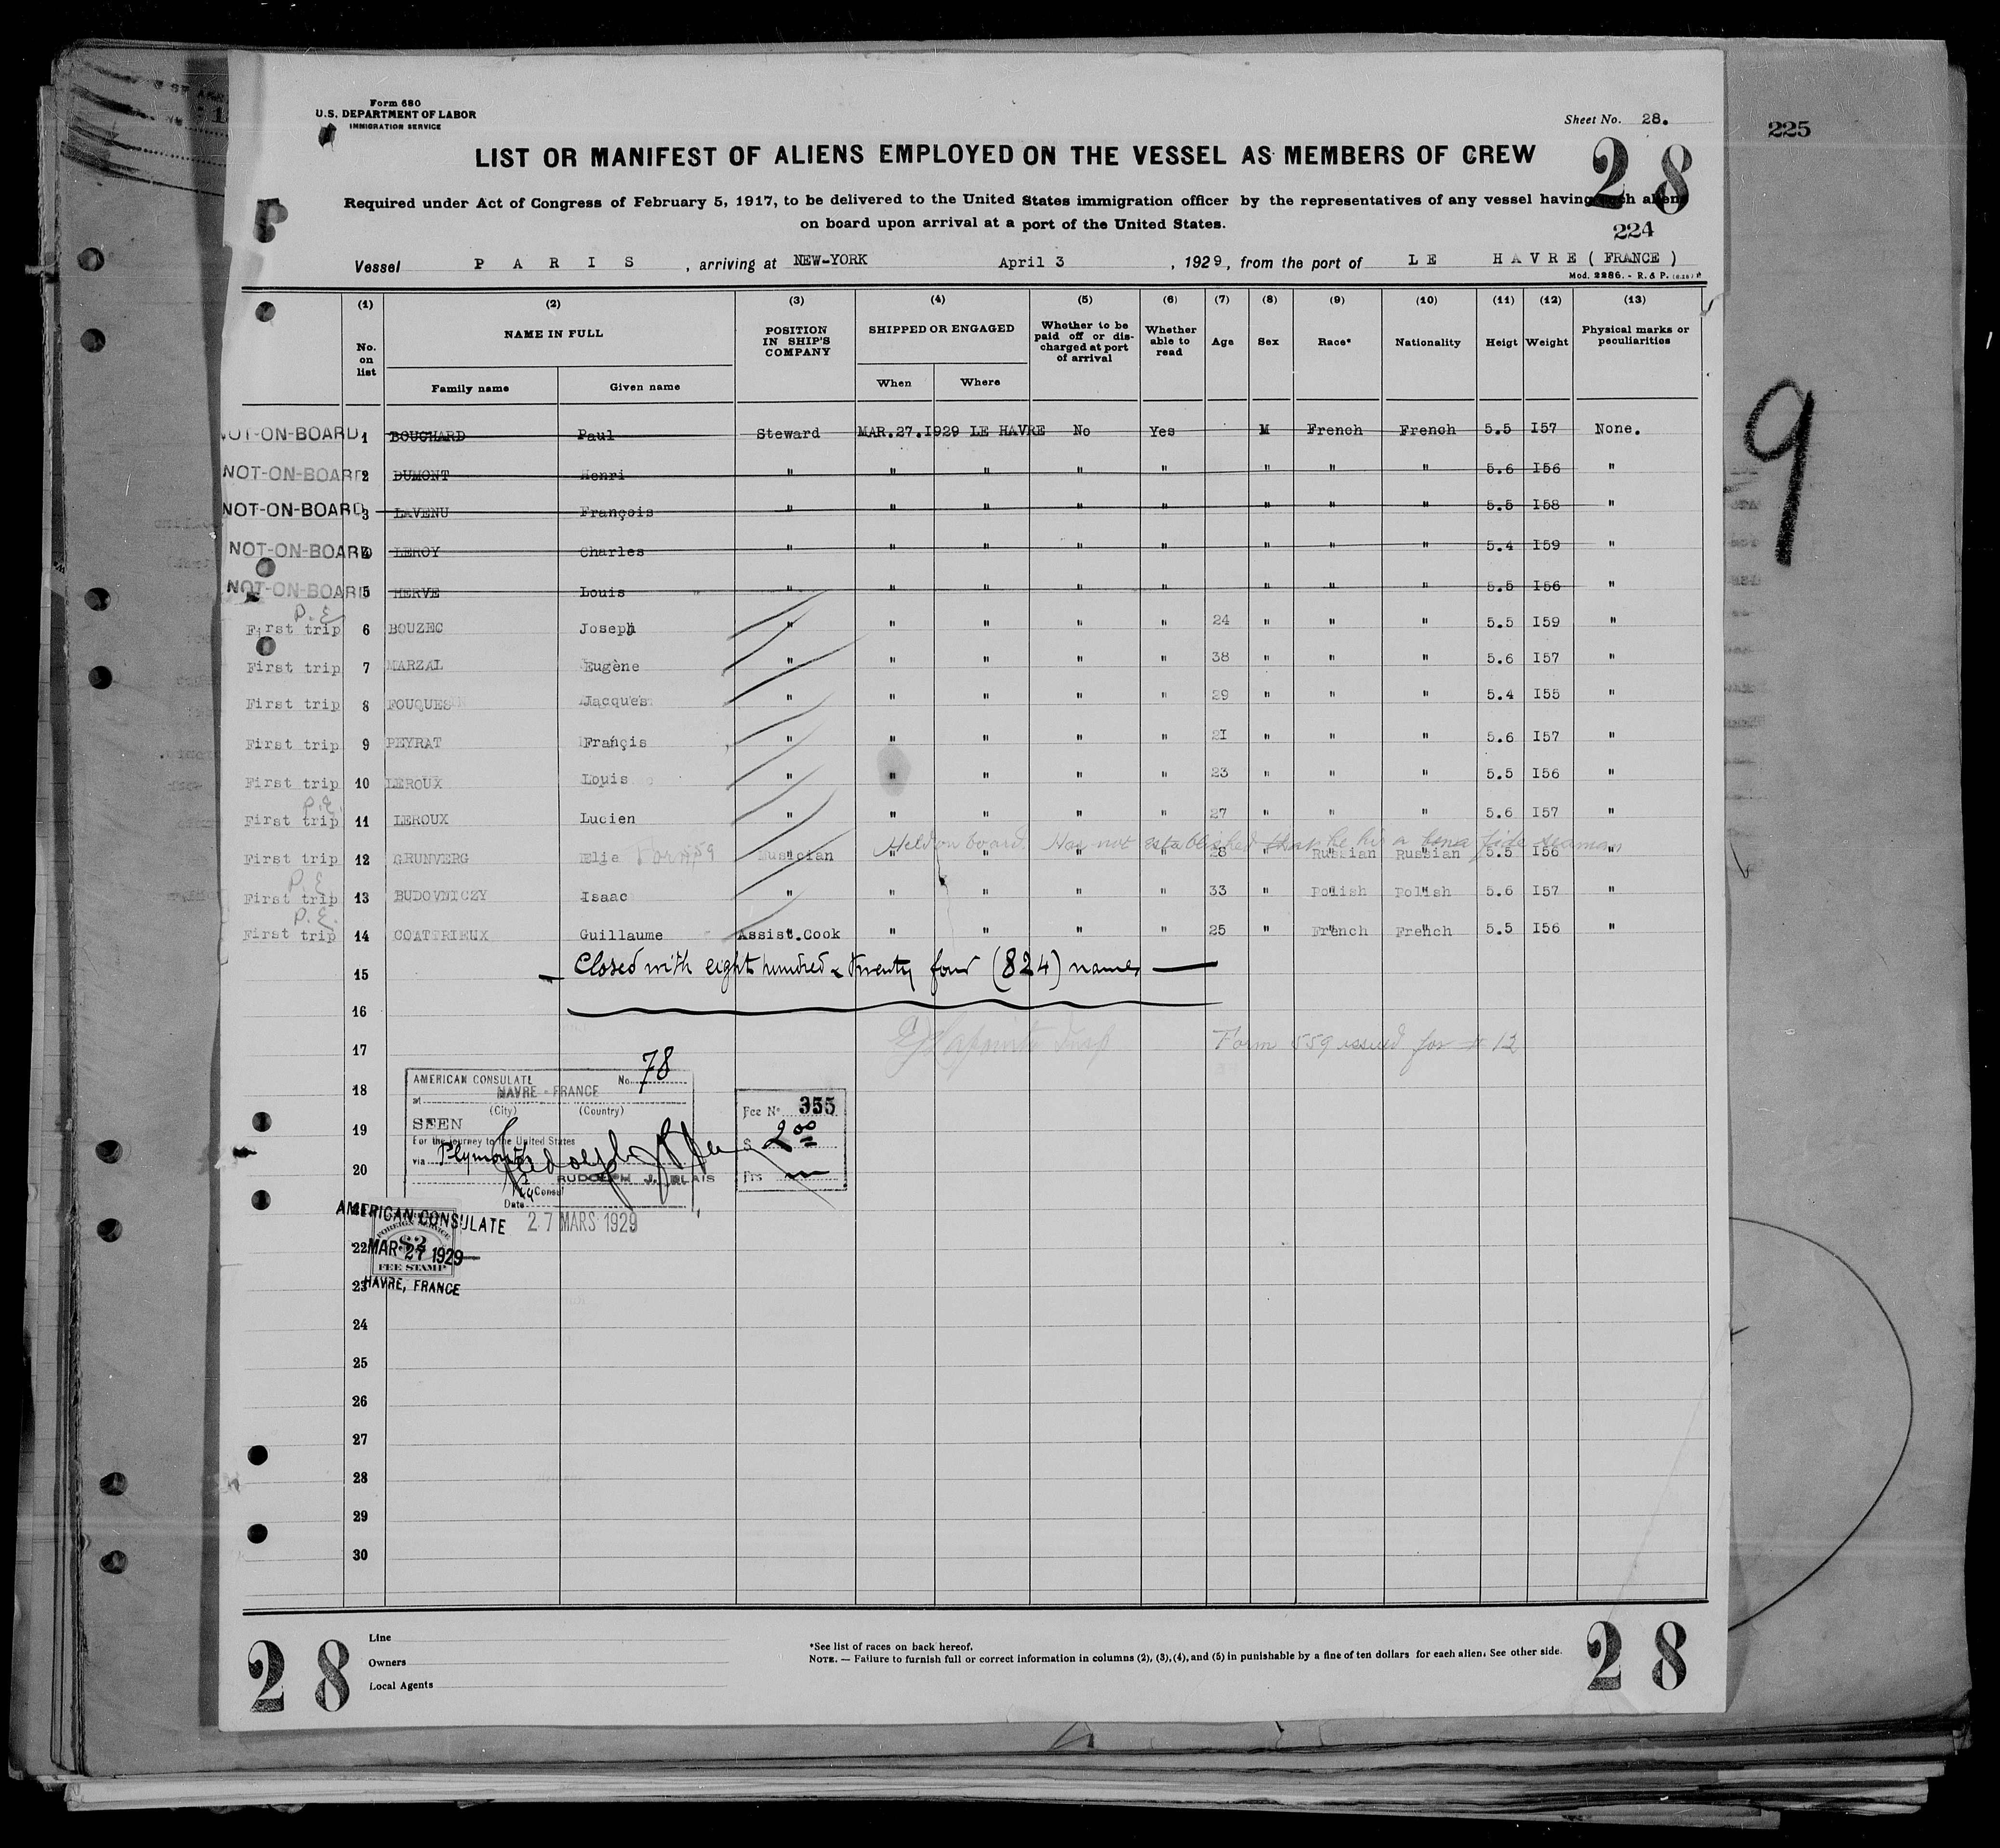 Form 680
U.S. DEPARTMENT OF LABOR
IMMIGRATION SERVICE
Sheet No. 28.
225
LIST OR MANIFEST OF ALIENS EMPLOYED ON THE VESSEL AS MEMBERS OF CREW
28
Required under Act of Congress of February 5, 1917, to be delivered to the United States immigration officer by the representatives of any vessel having such aliens
on board upon arrival at a port of the United States.
224
Vessel PARIS, arriving at NEW-YORK April 3, 1929, from the port of LE HAVRE ( FRANCE )
Mod. 2286. - R. & P.
(1) (2) (3) (4) (5) (6) (7) (8) (9) (10) (11) (12) (13)
No. on list NAME IN FULL POSITION IN SHIP'S COMPANY SHIPPED OR ENGAGED Whether to be paid off or discharged at port of arrival Whether able to read Age Sex Race* Nationality Heigt Weight Physical marks or peculiarities
Family name Given name When Where
NOT-ON-BOARD 1 BOUCHARD Paul Steward MAR.27.I929 LE HAVRE No Yes M French French 5.5 I57 None.
NOT-ON-BOARD 2 DUMONT Henri " " " " " " " " 5.6 I56 "
NOT-ON-BOARD 3 LAVENU François " " " " " " " " 5.5 I58 "
NOT-ON-BOARD 4 LEROY Charles " " " " " " " " 5.4 I59 "
NOT-ON-BOARD 5 HERVE Louis " " " " " " " " 5.5 I56 "
P.E.
First trip 6 BOUZEC Joseph " " " " " 24 " " " 5.5 I59 "
First trip 7 MARZAL Eugène " " " " " 38 " " " 5.6 I57 "
First trip 8 FOUQUES Jacques " " " " " 29 " " " 5.4 I55 "
First trip 9 PEYRAT Françis " " " " " 2I " " " 5.6 I57 "
First trip 10 LEROUX Louis " " " " " 23 " " " 5.5 I56 "
P.E.
First trip 11 LEROUX Lucien " " " " " 27 " " " 5.6 I57 "
Held on board. Has not established that he is a bona fide seaman
First trip 12 GRUNVERG Elie Form 559 Musician 28 " Russian Russian 5.5 I56 "
P.E.
First trip 13 BUDOVNICZY Isaac " " " " " 33 " Polish Polish 5.6 I57 "
P.E.
First trip 14 COATTRIEUX Guillaume Assist.Cook " " " " 25 " French French 5.5 I56 "
15 Closed with eight hundred & twenty four (824) names
16
17 Form 559 issued for # 12
18
19
20
21
22
23
24
25
26
27
28
29
30
AMERICAN CONSULATE No. 78
at HAVRE - FRANCE
(City) (Country)
SEEN
For the journey to the United States
via Plymouth
RUDOLPH J. BLAIS
Consul
Date 27 MARS 1929
Fee No. 355
$ 2 00
Frs
AMERICAN CONSULATE
MAR 27 1929
HAVRE, FRANCE
FOREIGN SERVICE
$2
FEE STAMP
9
28
Line
Owners
Local Agents
*See list of races on back hereof.
NOTE. — Failure to furnish full or correct information in columns (2), (3), (4), and (5) in punishable by a fine of ten dollars for each alien. See other side.
28